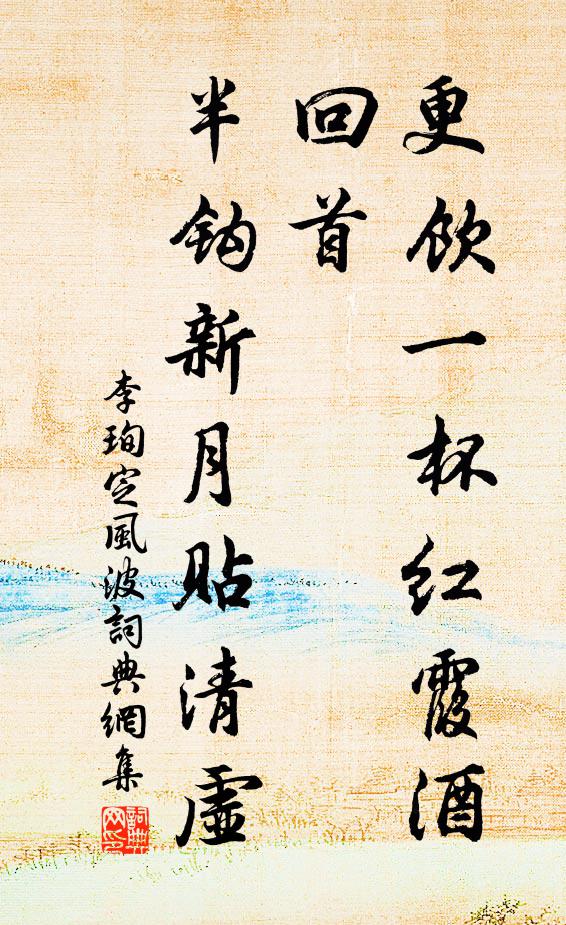 更飲一杯紅霞酒
回首
半鈎新月貼清虛
李珣定風波詞典網集
詞典
网印